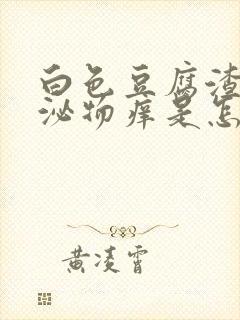 白色豆腐渣
泌物痒是怎
黄凌霄